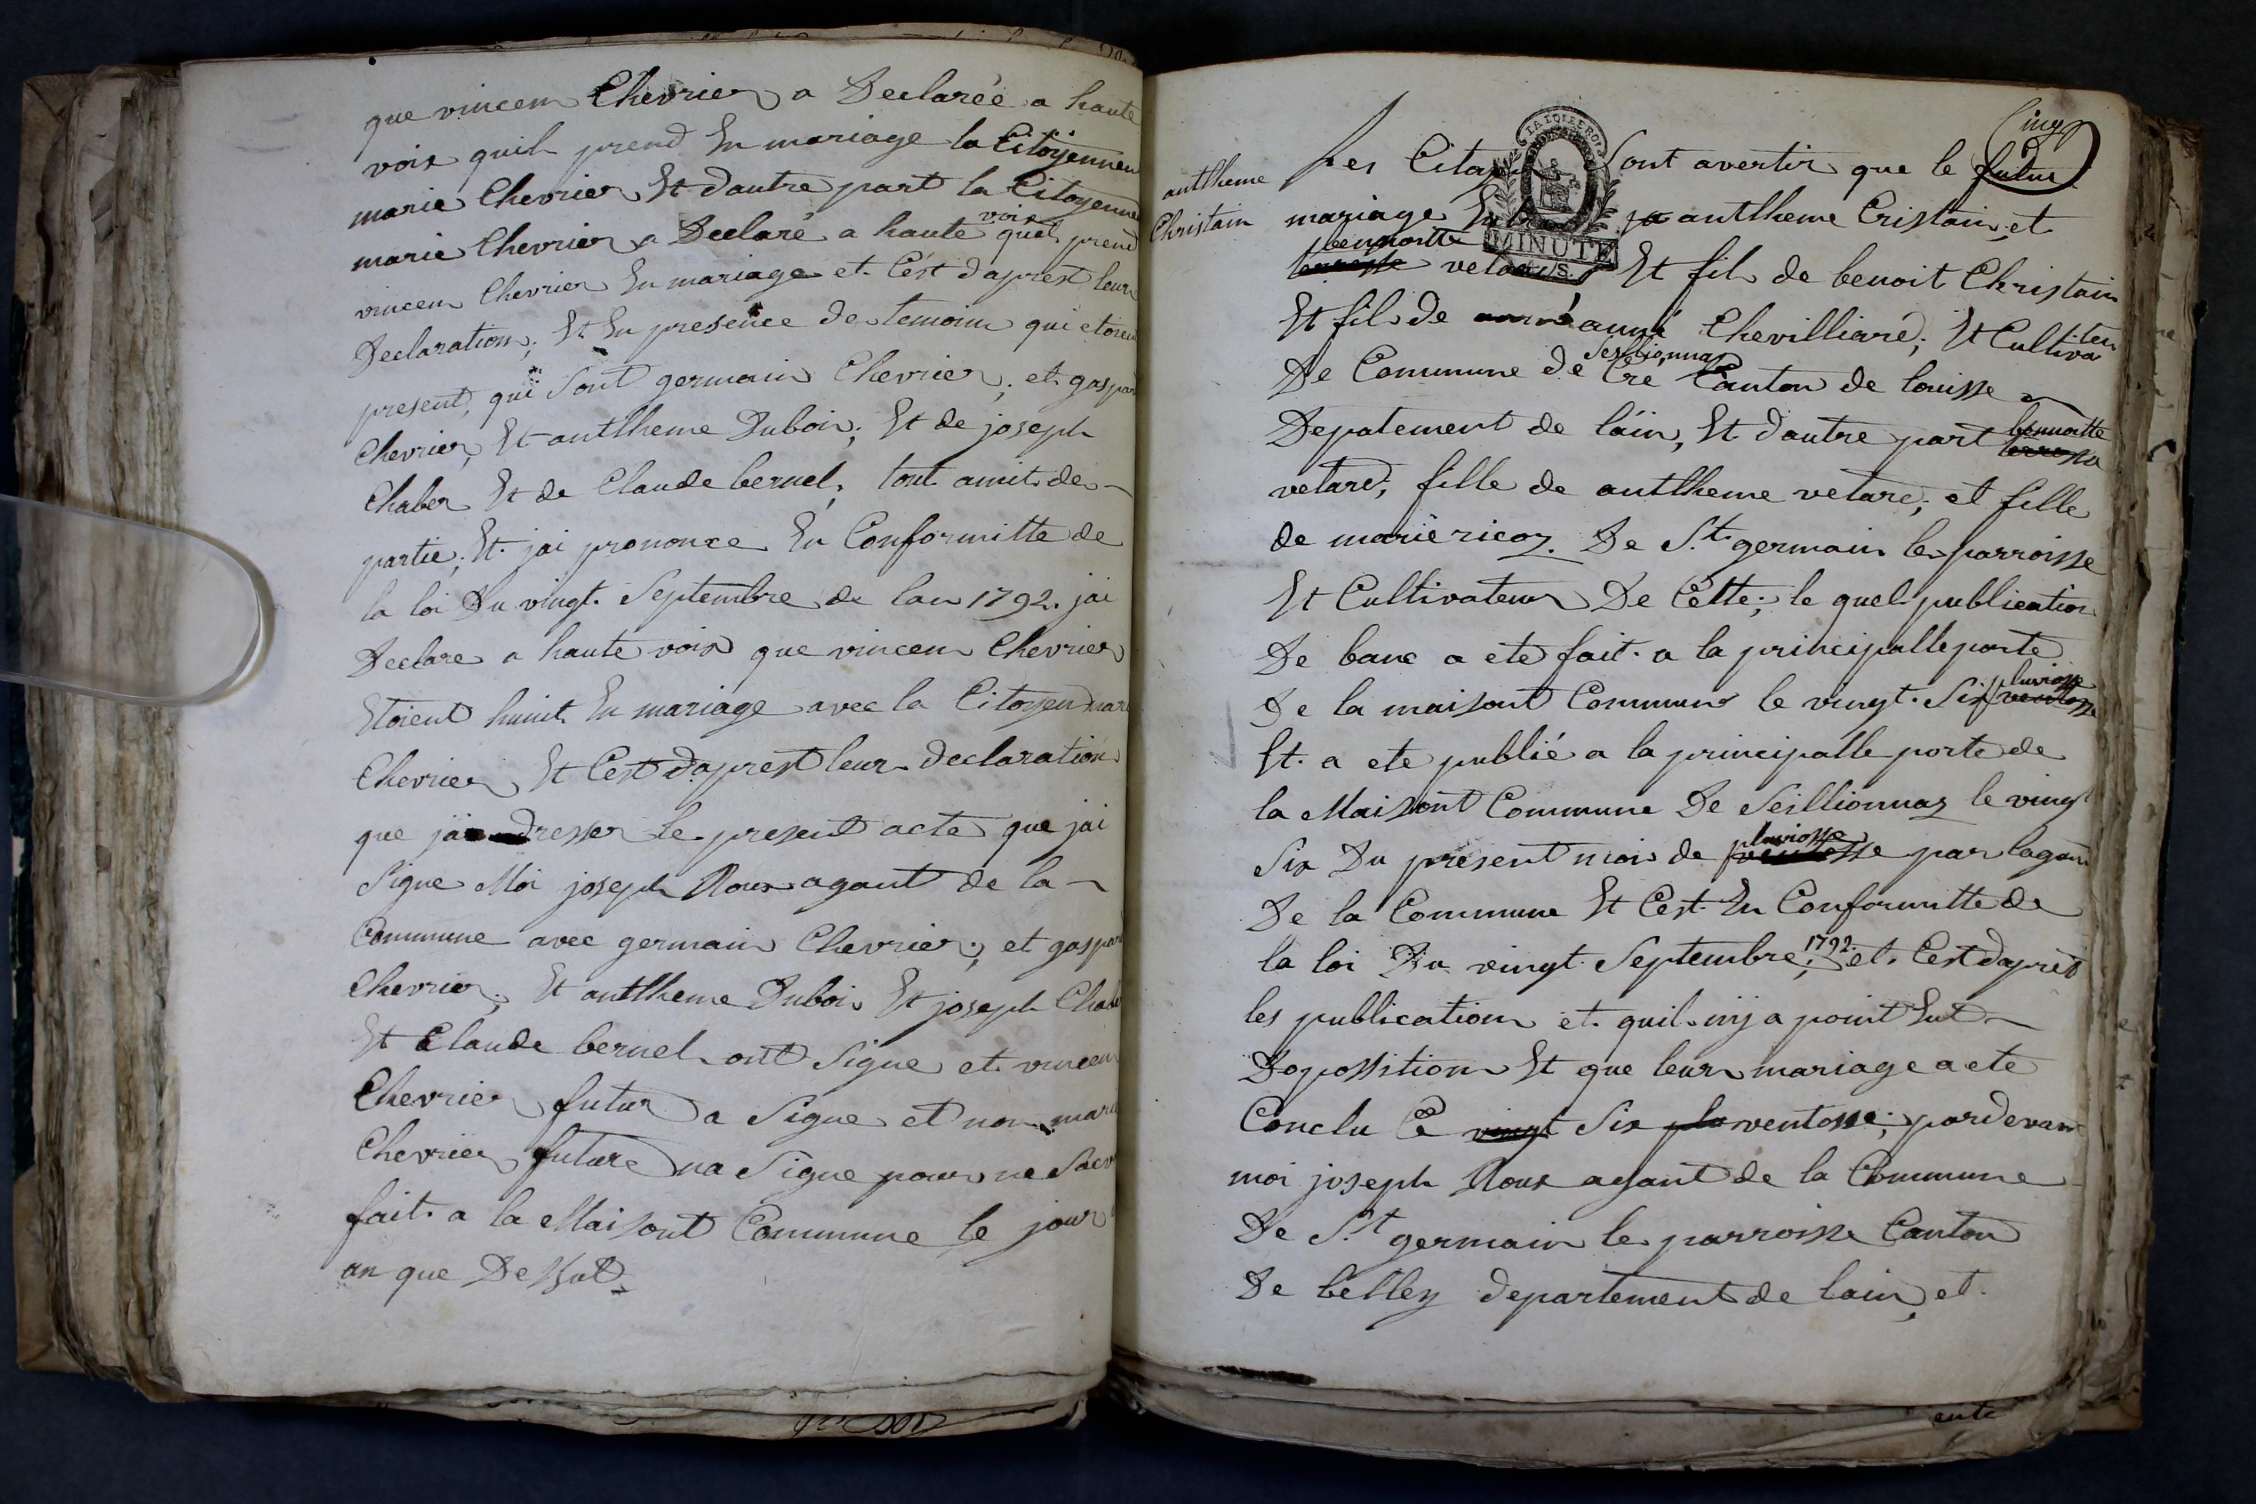 que vincem Chevrier a Declarée a haute
voix quil prend En mariage la Citoyennen
marie Chevrier Et dautre part la Citoyenne
marie Chevrier a Declaré a haute voix quel prend
vincem Chevrier En mariage et C'est daprest leur
Declaration; Et En presence de temoim qui etoien
present, qui Sont germain Chevrier; et gaspar
Chevrier, Et antlheme Duboir; Et de joseph
Chaber Et de Claude bernel; tout amit de
partie; Et jai prononce En Conformitte de
la loi Du vingt Septembre de lan 1792. jai
Declare a haute voix que vincem Chevrier
Etoient hunit En mariage avec la Citoyen mari
Chevrier Et Cest daprest leur declaration
que jai dresser le present acte que jai
Signe Moi joseph Roux agant de la
Commune avec germain Chevrier; et gaspar
Chevrier; Et antlheme Duboi Et joseph Chabe
Et Claude bernel ont Signe et vincem
Chevrier futur a Signe et non marie
Chevrier future na Signe pour ne Saev
fait a la Maisont Commune le jour
an que De Sut
Cinq
antlheme
Christain
Les Citoyen Sont avertir que le futur
LA LOI LE ROI
mariage antlheme Cristain, et
MINUTE
bennoitte vetard Et fil de benoit Christain
Et fil de anné Chevilliard; Et Cultivateu
De Commune de Seillionnaz Canton de louisse
Depatement de láin, Et dautre part bennoitte
vetard, fille de antlheme vetard; et fille
de marie ricoz. De St. germain les parroisse
Et Cultivateur De Cette; le quel publication
De banc a ete fait a la principalle porte
De la maisont Commune le vingt Six pluviosse
Et a ete publié a la principalle porte de
la Maisont Commune De Seillionnaz le vingt
Six Du present mois de pluviosse par lagan
De la Commune Et Cest En Conformitte de
la loi Du vingt Septembre; 1792. et Cest daprès
les publication et quil nij a point Eut
Dopossition Et que leur mariage a ete
Conclu Ce vingt Six plu ventosse; pardevan
moi joseph Roux agant de la Commune
De St germain les parroisse Canton
De belley departement de lain, et